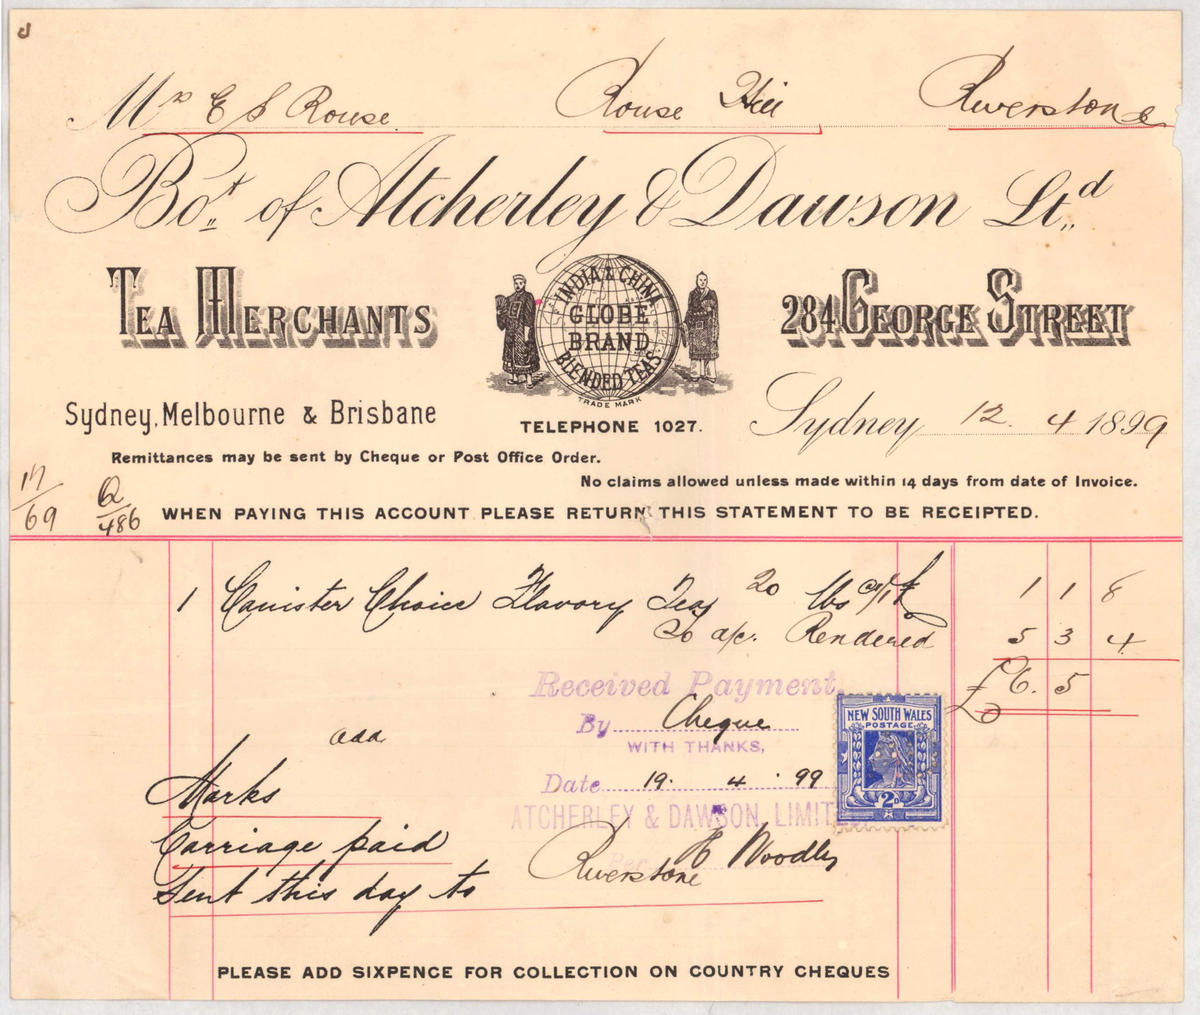 Mrs E S Rouse Rouse Hill Riverstone
Bo.t of Atcherley & Dawson Ltd
TEA MERCHANTS
INDIA & CHINA
GLOBE
BRAND
BLENDED TEAS
TRADE MARK
284, GEORGE STREET
Sydney, Melbourne & Brisbane
TELEPHONE 1027.
Sydney 12. 4 1899
Remittances may be sent by Cheque or Post Office Order.
No claims allowed unless made within 14 days from date of Invoice.
69
Q/486
WHEN PAYING THIS ACCOUNT PLEASE RETURN THIS STATEMENT TO BE RECEIPTED.
1 Canister Choice Flavory Tea 20 lbs @ 1/1 1 1 8
To a/c. Rendered 5 3 4
£6. 5
Received Payment,
By Cheque
WITH THANKS,
Date 19. 4. 99
ATCHERLEY & DAWSON, LIMITE
Per Woodley
NEW SOUTH WALES
POSTAGE
2D
add
Marks
Carriage paid
Sent this day to Riverstone
PLEASE ADD SIXPENCE FOR COLLECTION ON COUNTRY CHEQUES